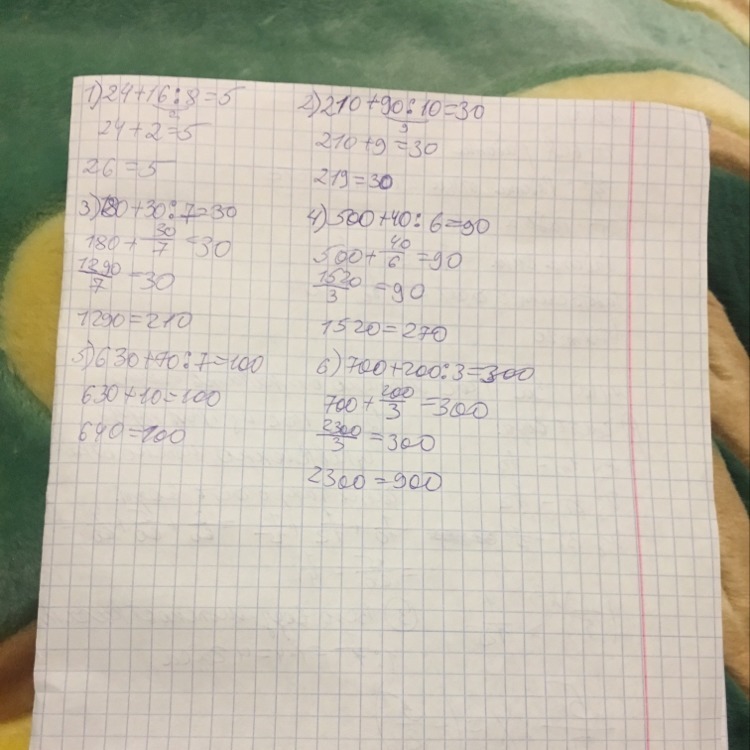 1) 24+16:8=5
2
24+2=5
26=5
2) 210+90:10=30
9
210+9=30
219=30
3) 180+30:7=30
180+30/7=30
1290/7=30
1290=210
4) 500+40:6=90
500+40/6=90
1520/3=90
1520=270
5) 630+70:7=100
630+10=100
640=100
6) 700+200:3=300
700+200/3=300
2300/3=300
2300=900